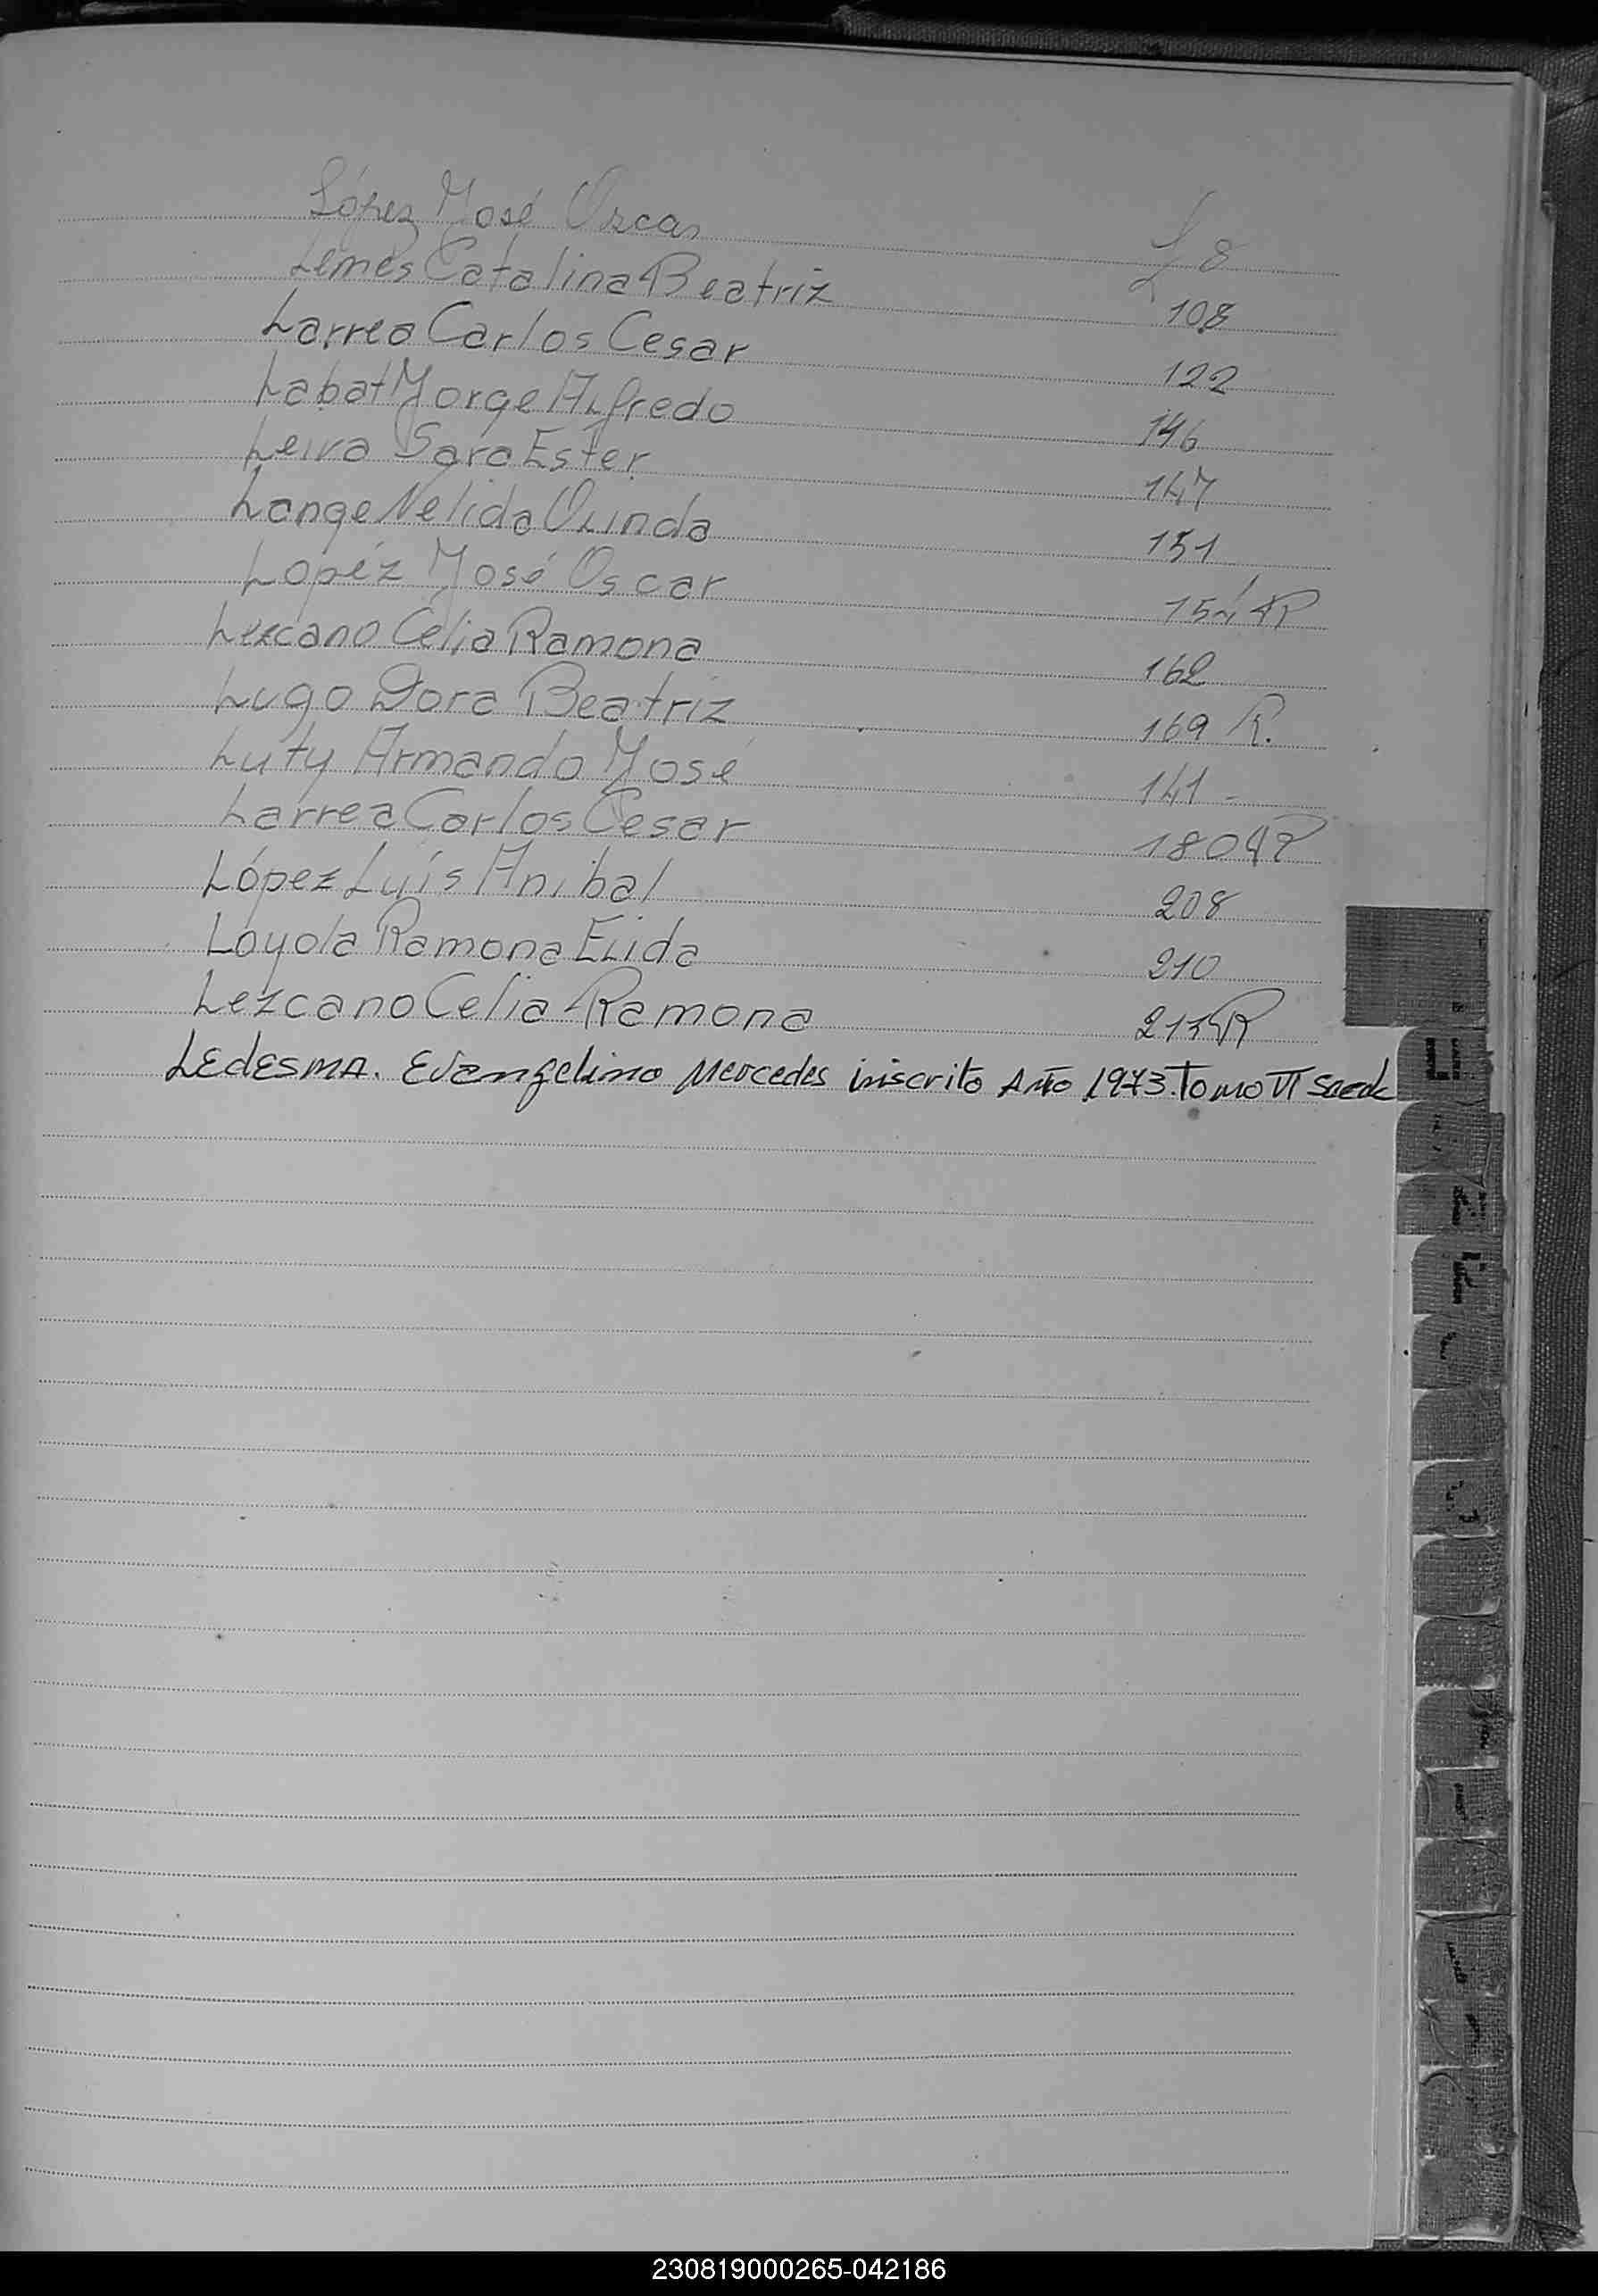 López José Oscar 8
Lemes Catalina Beatriz 108
Larrea Carlos Cesar 122
Labat Jorge Alfredo 146
Leiva Sara Ester 147
Lange Nelida Olinda 151
Lopéz José Oscar 154 R
Lezcano Celia Ramona 162
Lugo Dora Beatriz 169 R.
Luty Armando José 141 -
Larrea Carlos Cesar 180 R
López Luís Anibal 208
Loyola Ramona Elida 210
Lezcano Celia Ramona 213 R
LEDESMA. Evangelino Mercedes inscrito Año 1973. Tomo VI
230819000265-042186